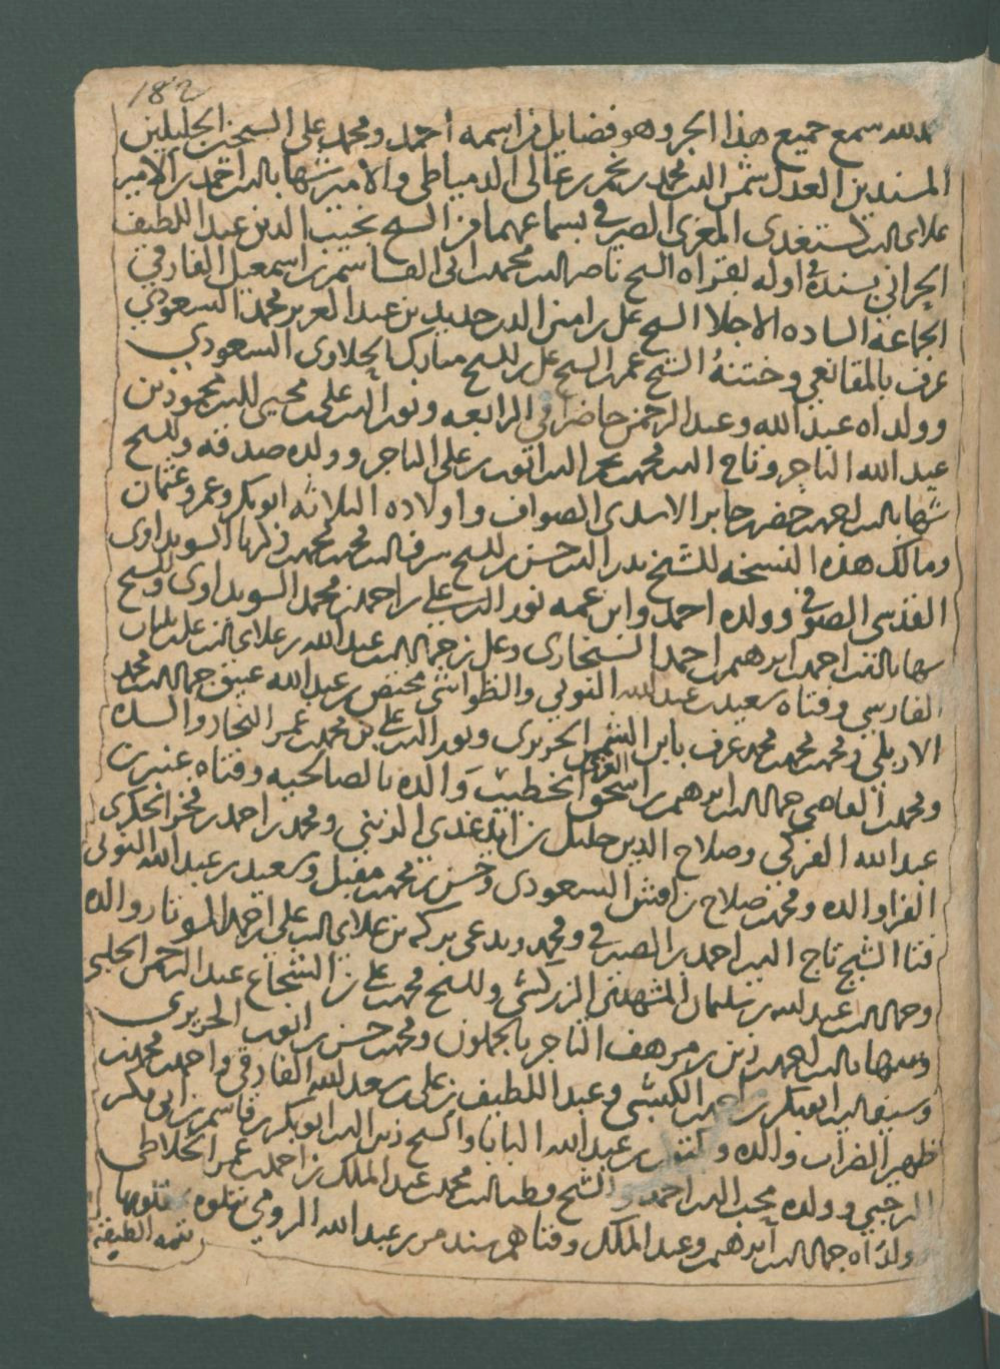 182
لله سمع جميع هذا الجزو وهو فضايل من اسمه احمد ومحمد على الشيخين الجليلين
المسندين العدل شمس الدين محمد بن غالى الدمياطى والامير شهاب الدين احمد بن الامير
علاى الدين كستغدى المعزى الصيرفى بسماعهما من الشيخ نجيب الدين عبد اللطيف
الحرانى بسنده اوله بقراه الشيخ ناصر الدين محمد بن ابى القاسم بن اسمعيل الفارقى
الجماعة الساده الاجلا الشيخ على بن امين الدين حديد بن عبد العزيز محمد السعودى
عرف بالمقانعى وختنه الشيخ عمر بن الشيخ على بن الشيخ مبارك الحلاوى السعودى
وولداه عبد الله وعبد الرحمن حاضرا فى الرابعه ونور الدين على بن محيى الدين محمود بن
عبد الله التاجر وتاج الدين محمد بن على التاجر وولده صدقه والشيخ
شهاب الدين احمد بن خضر جابر الاسدى الصواف واولاده الثلاثه ابو بكر وعمر وعثمان
ومالك هذه النسخه للشيخ بدر الدين حسن بن الشيخ شرف الدين محمد بن محمد بن زكريا السويداوى
القدسى الصوفى وولده احمد وابن عمه نور الدين على بن احمد بن محمد السويداوى والشيخ
شهاب الدين احمد بن ابرهيم بن احمد السنجارى وعلى بن جمال الدين عبد الله بن علاى الدين على بن بلبان
الفارسى وفتاه سعيد بن عبد الله النوبى والطواشى مختص بن عبد الله عتيق جمال الدين محمد
الاربلى ومحمد بن محمد بن محمد عرف بابن الشمس الحريرى ونور الدين على بن محمد بن عمر النجار والده
ومحمد بن القاضى جمال الدين ابرهيم بن اسحق الخطيب والده بالصالحيه وفتاه عنبر بن
عبد الله التركى وصلاح الدين خليل بن ايدغدى الزينى ومحمد بن احمد بن فخر الحكرى
الفرا والده ومحمد بن صلاح بن اقش السعودى وحسن بن محمد بن مقبل وسعيد بن عبد الله النوبى
فتا الشيخ تاج الدين احمد بن الصيرفى ومحمد ويدعى بركه بن علاى الدين على بن احمد والده
وجمال الدين عبد الله بن سليمان المشهدى الزركشى والشيخ محمد بن على بن الشجاع عبد الرحمن الحلبى
وشهاب الدين احمد بن زين بن مرهف التاجر بالجملون ومحمد بن حسن بن الحريرى
وسيف الدين ابو بكر بن احمد الكبشى وعبد اللطيف بن على بن سعد الله الفارقى واحمد بن محمد بن
ظهير الضراب والده بن عبد الله البابا والشيخ زين الدين ابو بكر بن قاسم بن ابى بكر
الرحبى وولده محب الدين احمد والشيخ قطب الدين محمد بن عبد الملك بن احمد بن عمر الخلاطى
وولداه جمال الدين ابرهيم وعبد الملك وفتاهم سندمر بن عبد الله الرومى تتلوه تتلوها
تتمه الطبقة